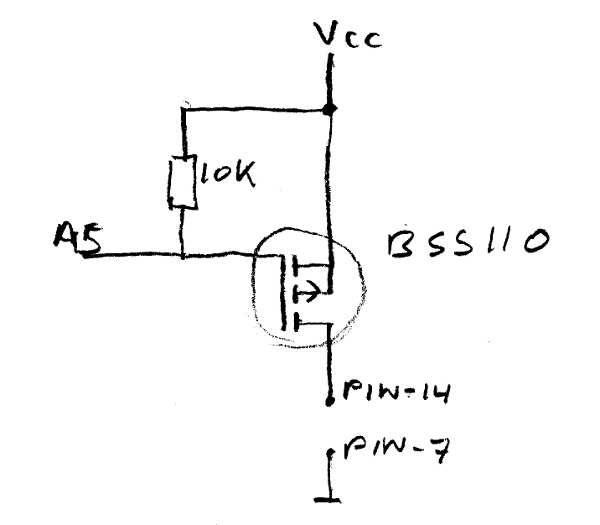 Vcc
10K
A5
BSS110
PIN-14
PIN-7